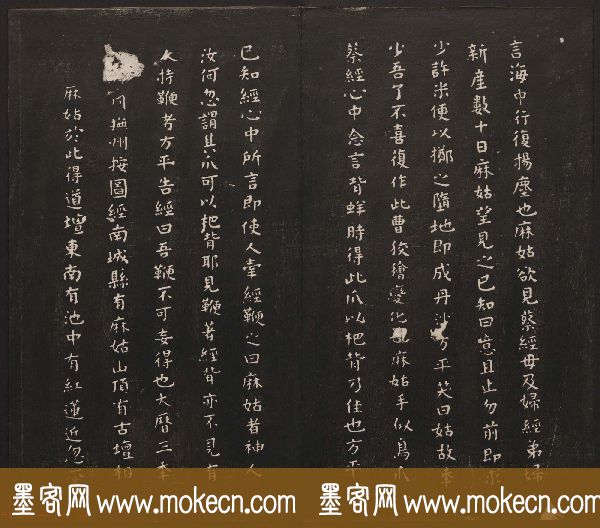 言海中行復揚塵也麻姑欲見蔡經母及婦經弟婦
新產數十日麻姑望見之已知曰噫且止勿前即求
少許米便以擲之墮地即成丹沙方平笑曰姑故年
少吾了不喜復作此曹狡獪變化也麻姑手似鳥爪
蔡經心中念言背蛘時得此爪以杷背乃佳也方平
已知經心中所言即使人牽經鞭之曰麻姑者神人
汝何忽謂其爪可以杷背耶見鞭著經背亦不見有
人持鞭者方平告經曰吾鞭不可妄得也大曆三年
撫州按圖經南城縣有麻姑山頂有古壇相
麻姑於此得道壇東南有池中有紅蓮近忽
墨客网 www.mokecn.com 墨客网 www.mokecn.com